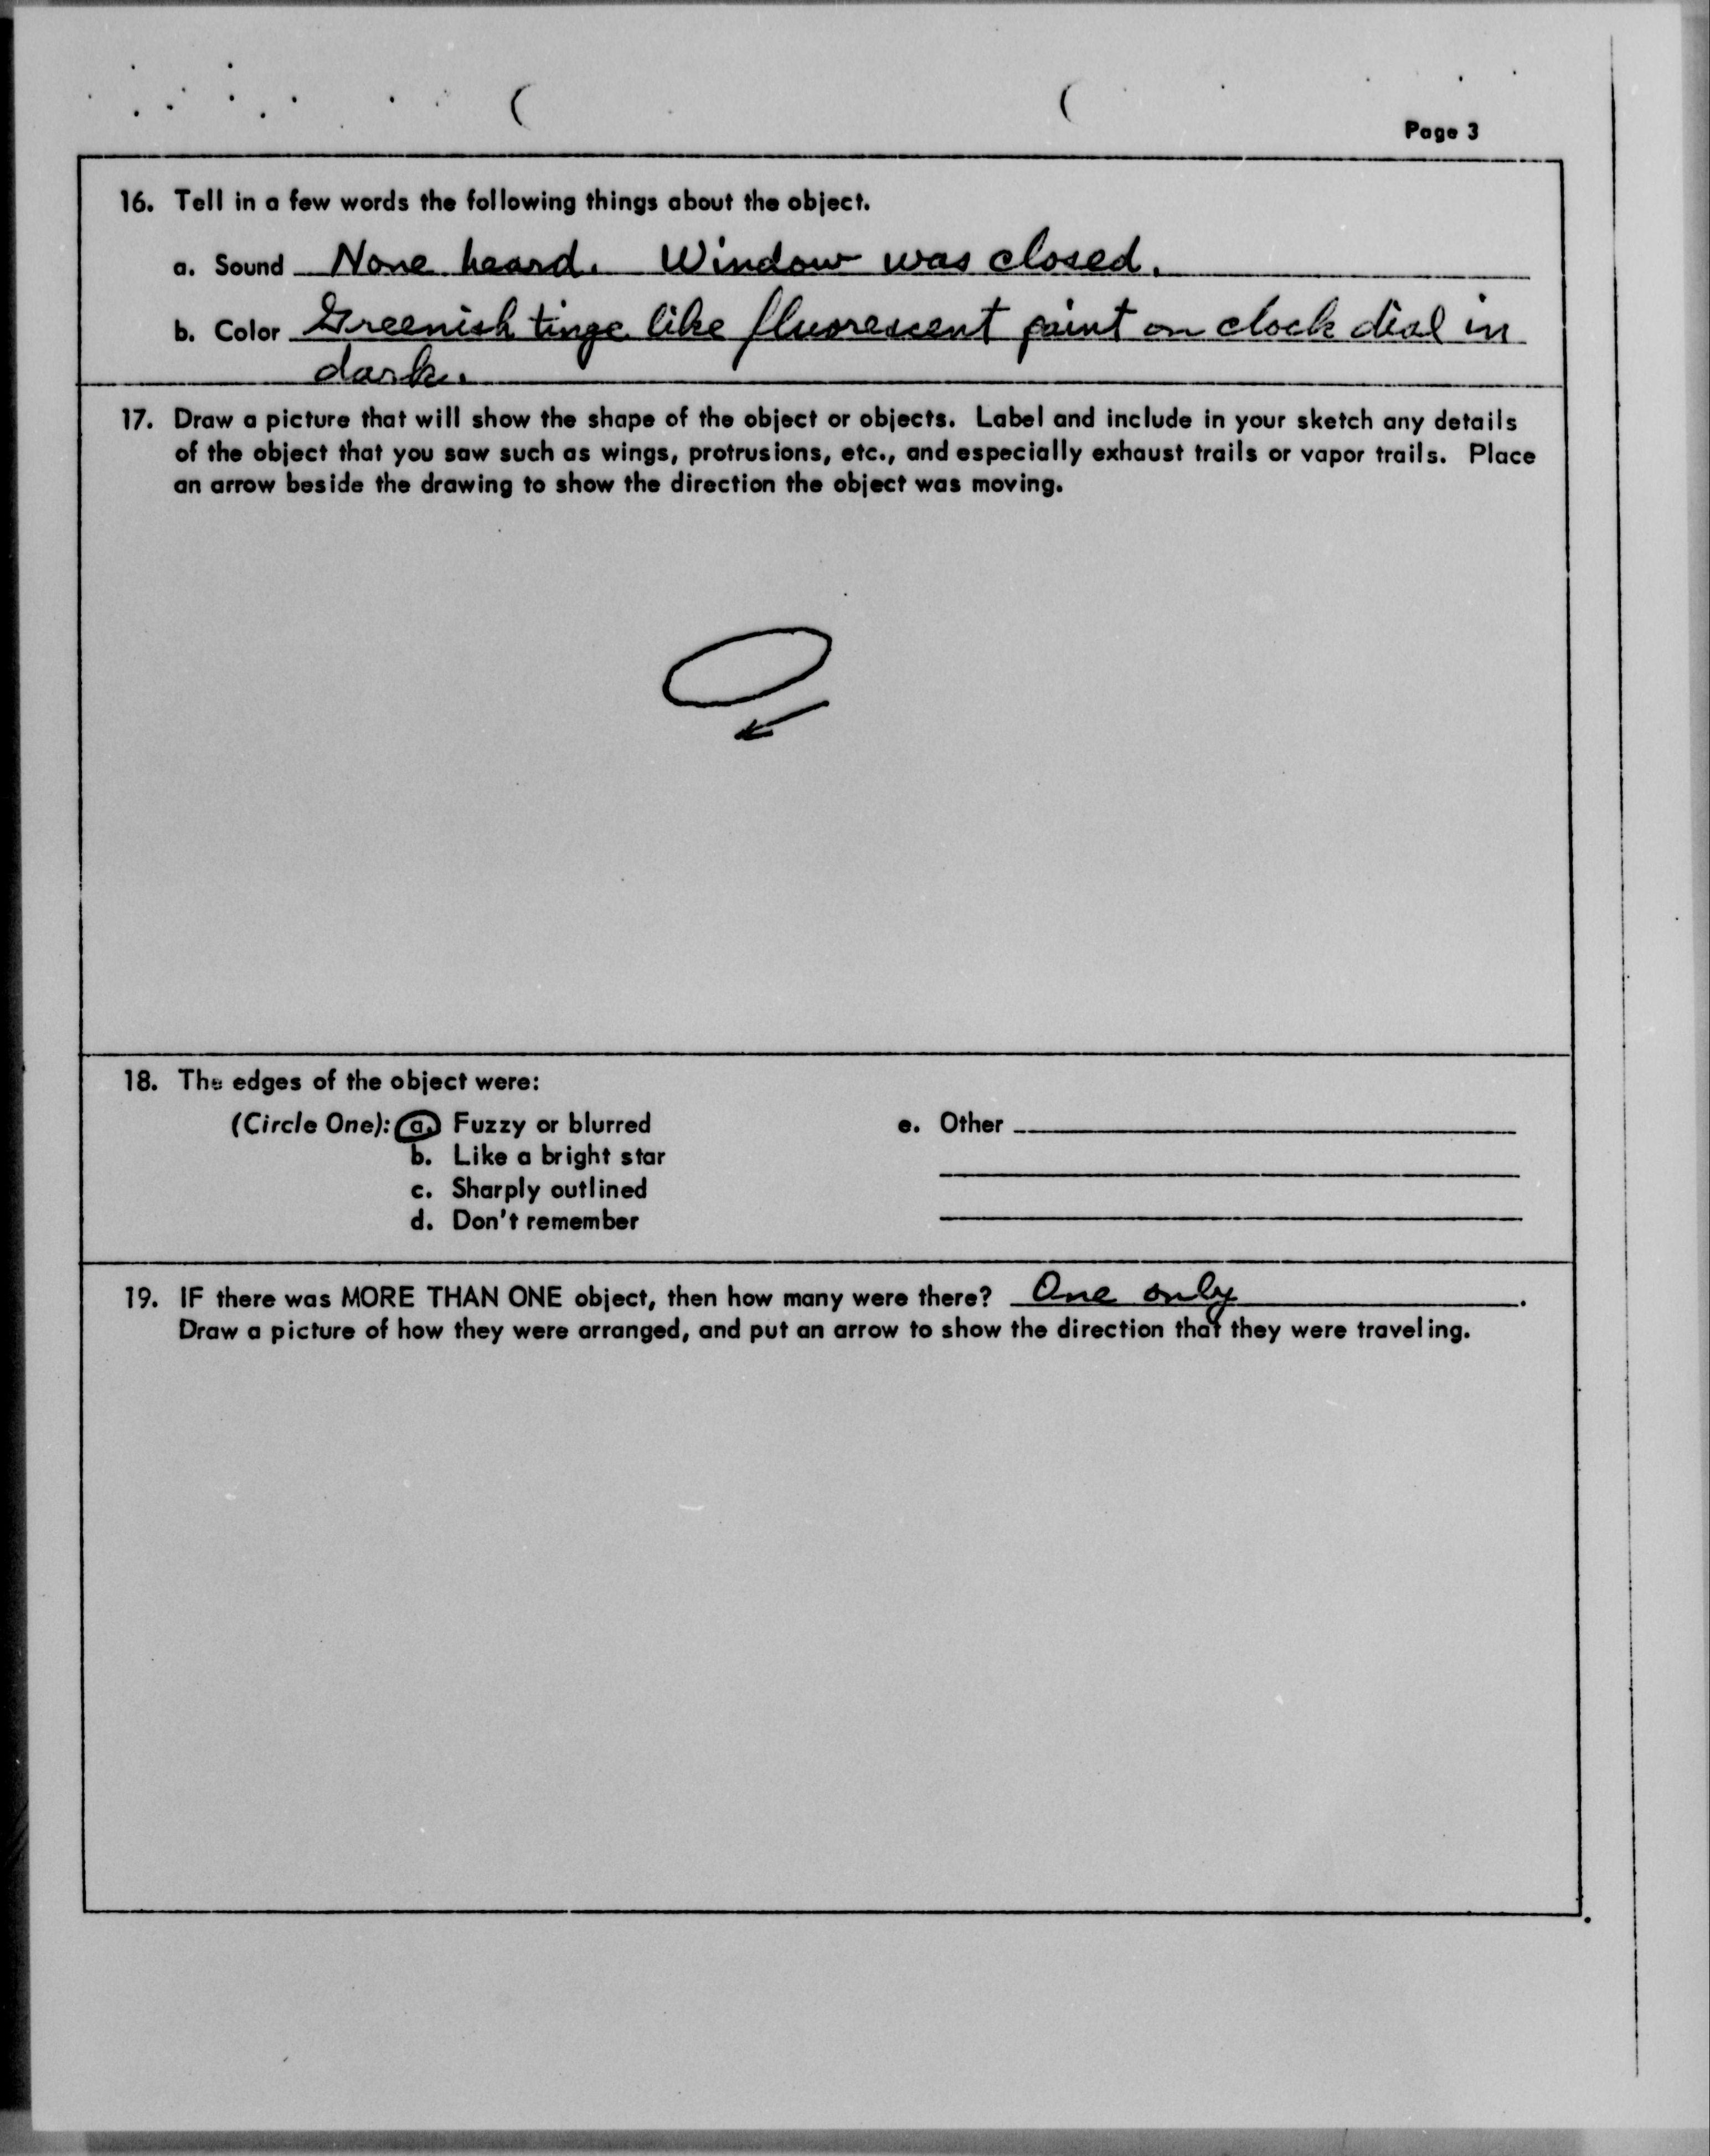 Page 3
16. Tell in a few words the following things about the object.
a. Sound None heard. Window was closed.
b. Color Greenish tinge like fluorescent paint on clock dial in
dark.
17. Draw a picture that will show the shape of the object or objects. Label and include in your sketch any details
of the object that you saw such as wings, protrusions, etc., and especially exhaust trails or vapor trails. Place
an arrow beside the drawing to show the direction the object was moving.
18. The edges of the object were:
(Circle One): a. Fuzzy or blurred
b. Like a bright star
c. Sharply outlined
d. Don't remember
e. Other
19. IF there was MORE THAN ONE object, then how many were there? One only.
Draw a picture of how they were arranged, and put an arrow to show the direction that they were traveling.